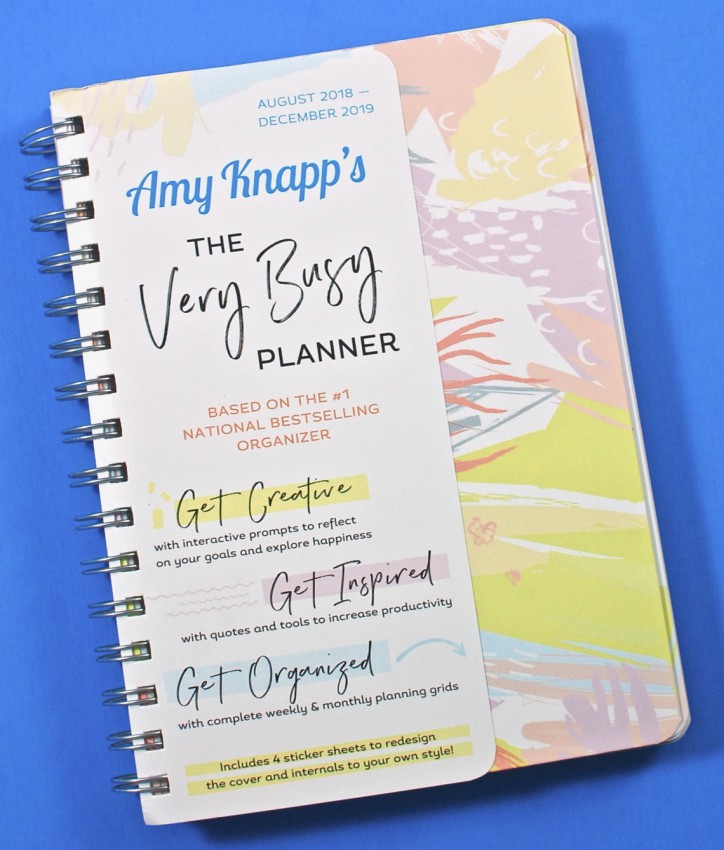 AUGUST 2018 —
DECEMBER 2019
Amy Knapp's
THE
Very Busy
PLANNER
BASED ON THE #1
NATIONAL BESTSELLING
ORGANIZER
Get Creative
with interactive prompts to reflect
on your goals and explore happiness
Get Inspired
with quotes and tools to increase productivity
Get Organized
with complete weekly & monthly planning grids
Includes 4 sticker sheets to redesign
the cover and internals to your own style!